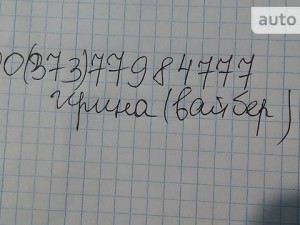 0(373)77984777
Ирина (вайбер)
auto